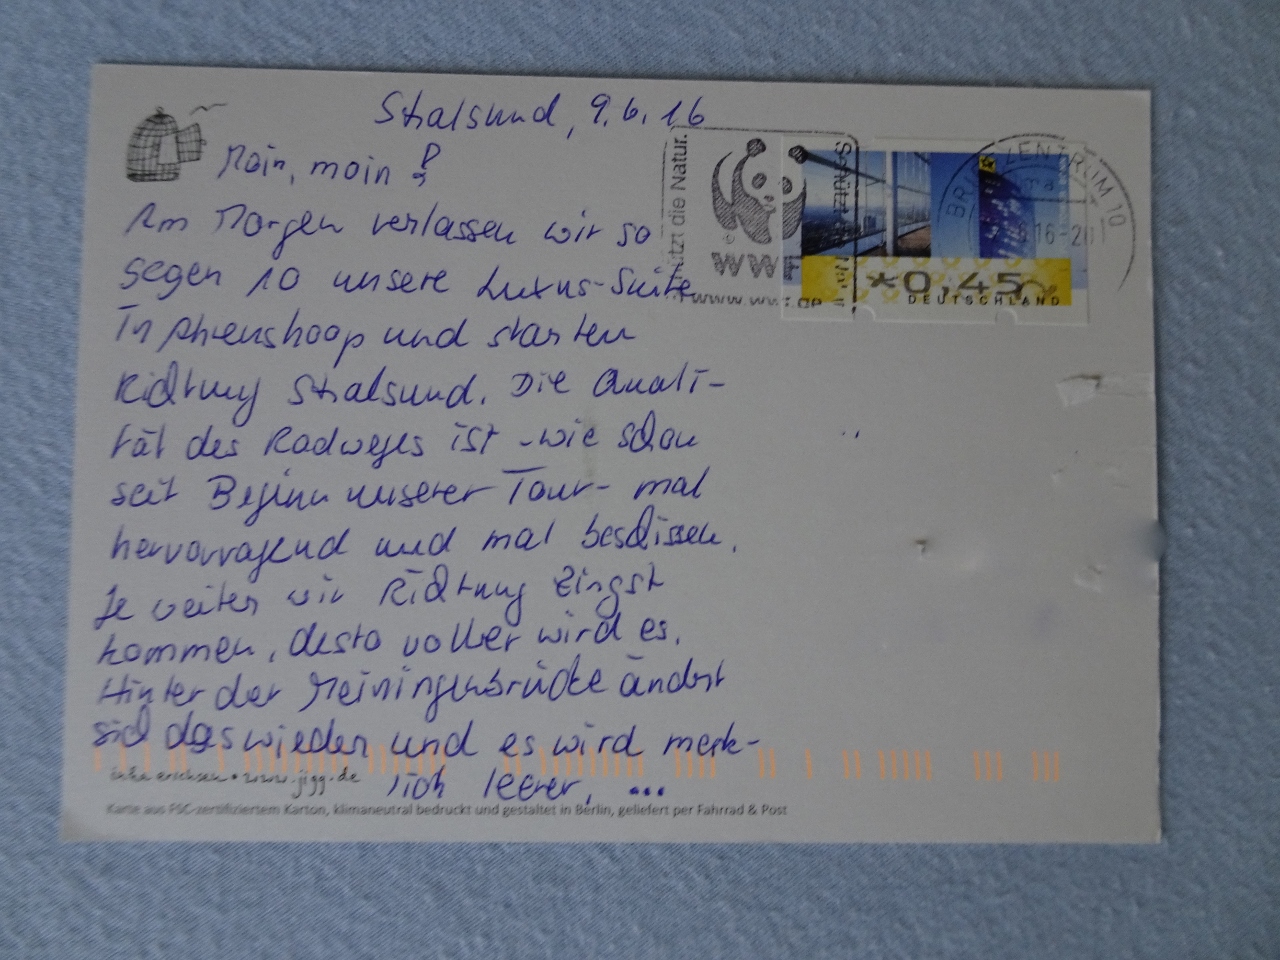 Stralsund, 9.6.16
Moin, moin!
Am Morgen verlassen wir so
gegen 10 unsere Luxus-Suite
in Ahrenshoop und starten
Richtung Stralsund. Die Quali-
tät des Radweges ist - wie schon
seit Beginn unserer Tour - mal
hervorragend und mal beschissen.
Je weiter wir Richtung Zingst
kommen, desto voller wird es.
Hinter der Meiningenbrücke ändert
sich das wieder und es wird merk-
lich leerer, ...
inka erichsen • www.jigg.de
Karte aus FSC-zertifiziertem Karton, klimaneutral bedruckt und gestaltet in Berlin, geliefert per Fahrrad & Post
Schützt die Natur.
WWF
www.wwf.de
BRIEFZENTRUM 10
16-20
*0,45
DEUTSCHLAND